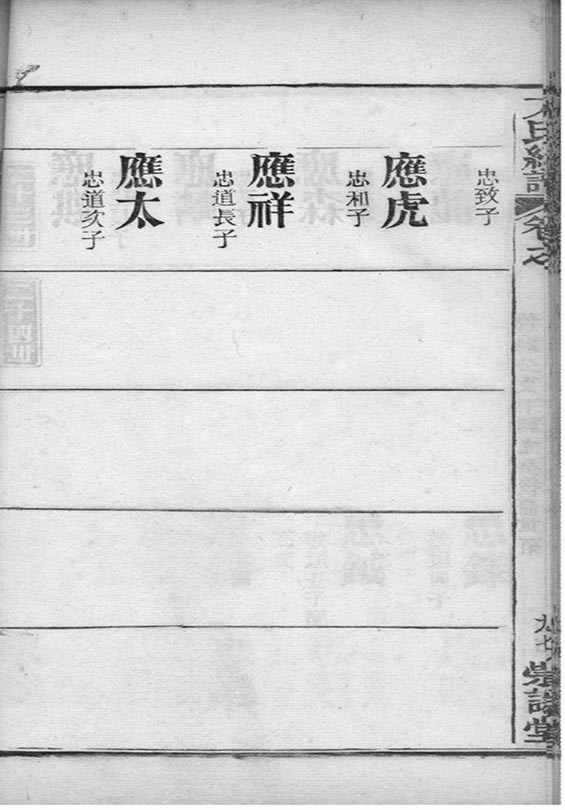 忠致子
應虎
忠和子
應祥
忠道長子
應太
忠道次子
氏續譜
卷之
九七
堂